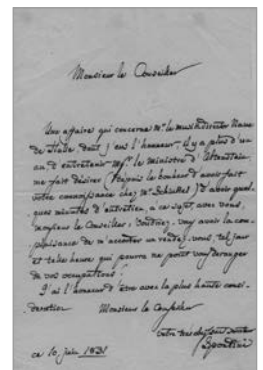 Monsieur le Conseiller
Une affaire qui concerne Mr. le musikdirector
de Stade dont j'eus l'honneur, il y a plus d'un
an d'entretenir le ministre d'Altenstein
me fait désirer (depuis le bonheur d'avoir fait
votre connaissance chez Mr. ) d'avoir quel-
ques minutes d'entretien, à ce sujet, avec vous,
Monsieur le Conseiller; voudriez-vous avoir la com-
plaisance de m'accorter un rendez-vous, tel jour
et telle heure qui pourra ne point vous déranger
de vos occupations!
J'ai l'honneur d'être avec la plus haute consi-
dération Monsieur le Conseiller
votre très
Spontini
ce 10 juin 1831